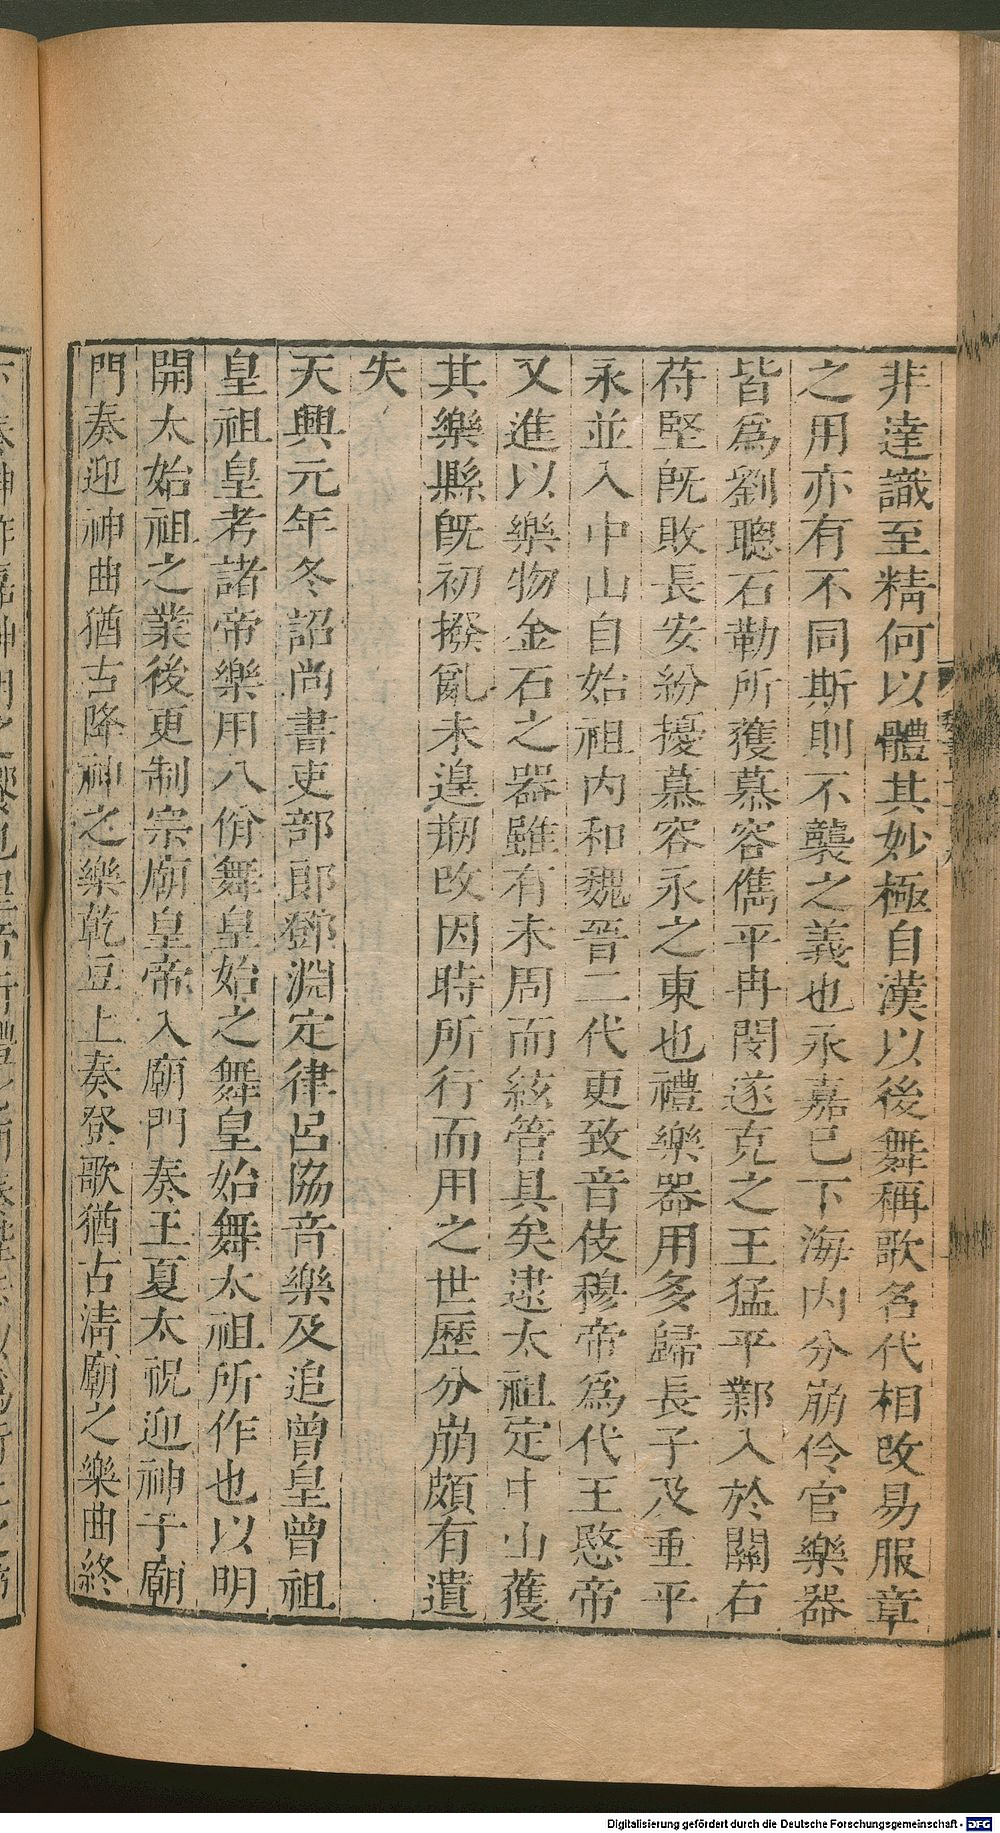 非達識至精何以體其妙極自漢以後舞稱歌名代相改易服章
之用亦有不同斯則不襲之義也永嘉已下海内分崩伶官樂器
皆爲劉聰石勒所獲慕容儁平冉閔遂克之王猛平鄴入於關右
苻堅既敗長安紛擾慕容永之東也禮樂器用多歸長子及垂平
永並入中山自始祖内和魏晉二代更致音伎穆帝爲代王愍帝
又進以樂物金石之器雖有未周而絃管具矣逮太祖定中山獲
其樂縣既初撥亂未遑剏改因時所行而用之世歷分崩頗有遺
失
天興元年冬詔尚書吏部郎鄧淵定律呂協音樂及追曾皇曾祖
皇祖皇考諸帝樂用八佾舞皇始之舞皇始舞太祖所作也以明
開太始祖之業後更制宗廟皇帝入廟門奏王夏太祝迎神于廟
門奏迎神曲猶古降神之樂乾豆上奏登歌猶古清廟之樂曲終
Digitalisierung gefördert durch die Deutsche Forschungsgemeinschaft - DFG